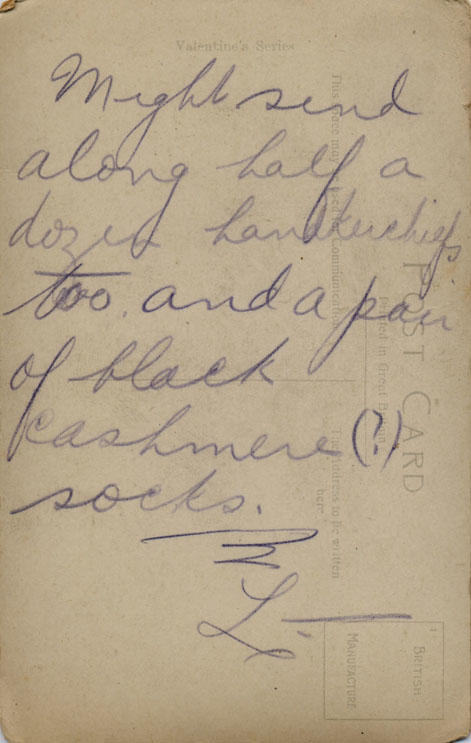 Valentine's Series
Might send
along half a
dozen handkerchiefs
too. and a pair
of black
cashmere (?)
socks.
L.
POST CARD
Printed in Great Britain
This space may be used for Communication
The address to be written
here.
BRITISH
MANUFACTURE